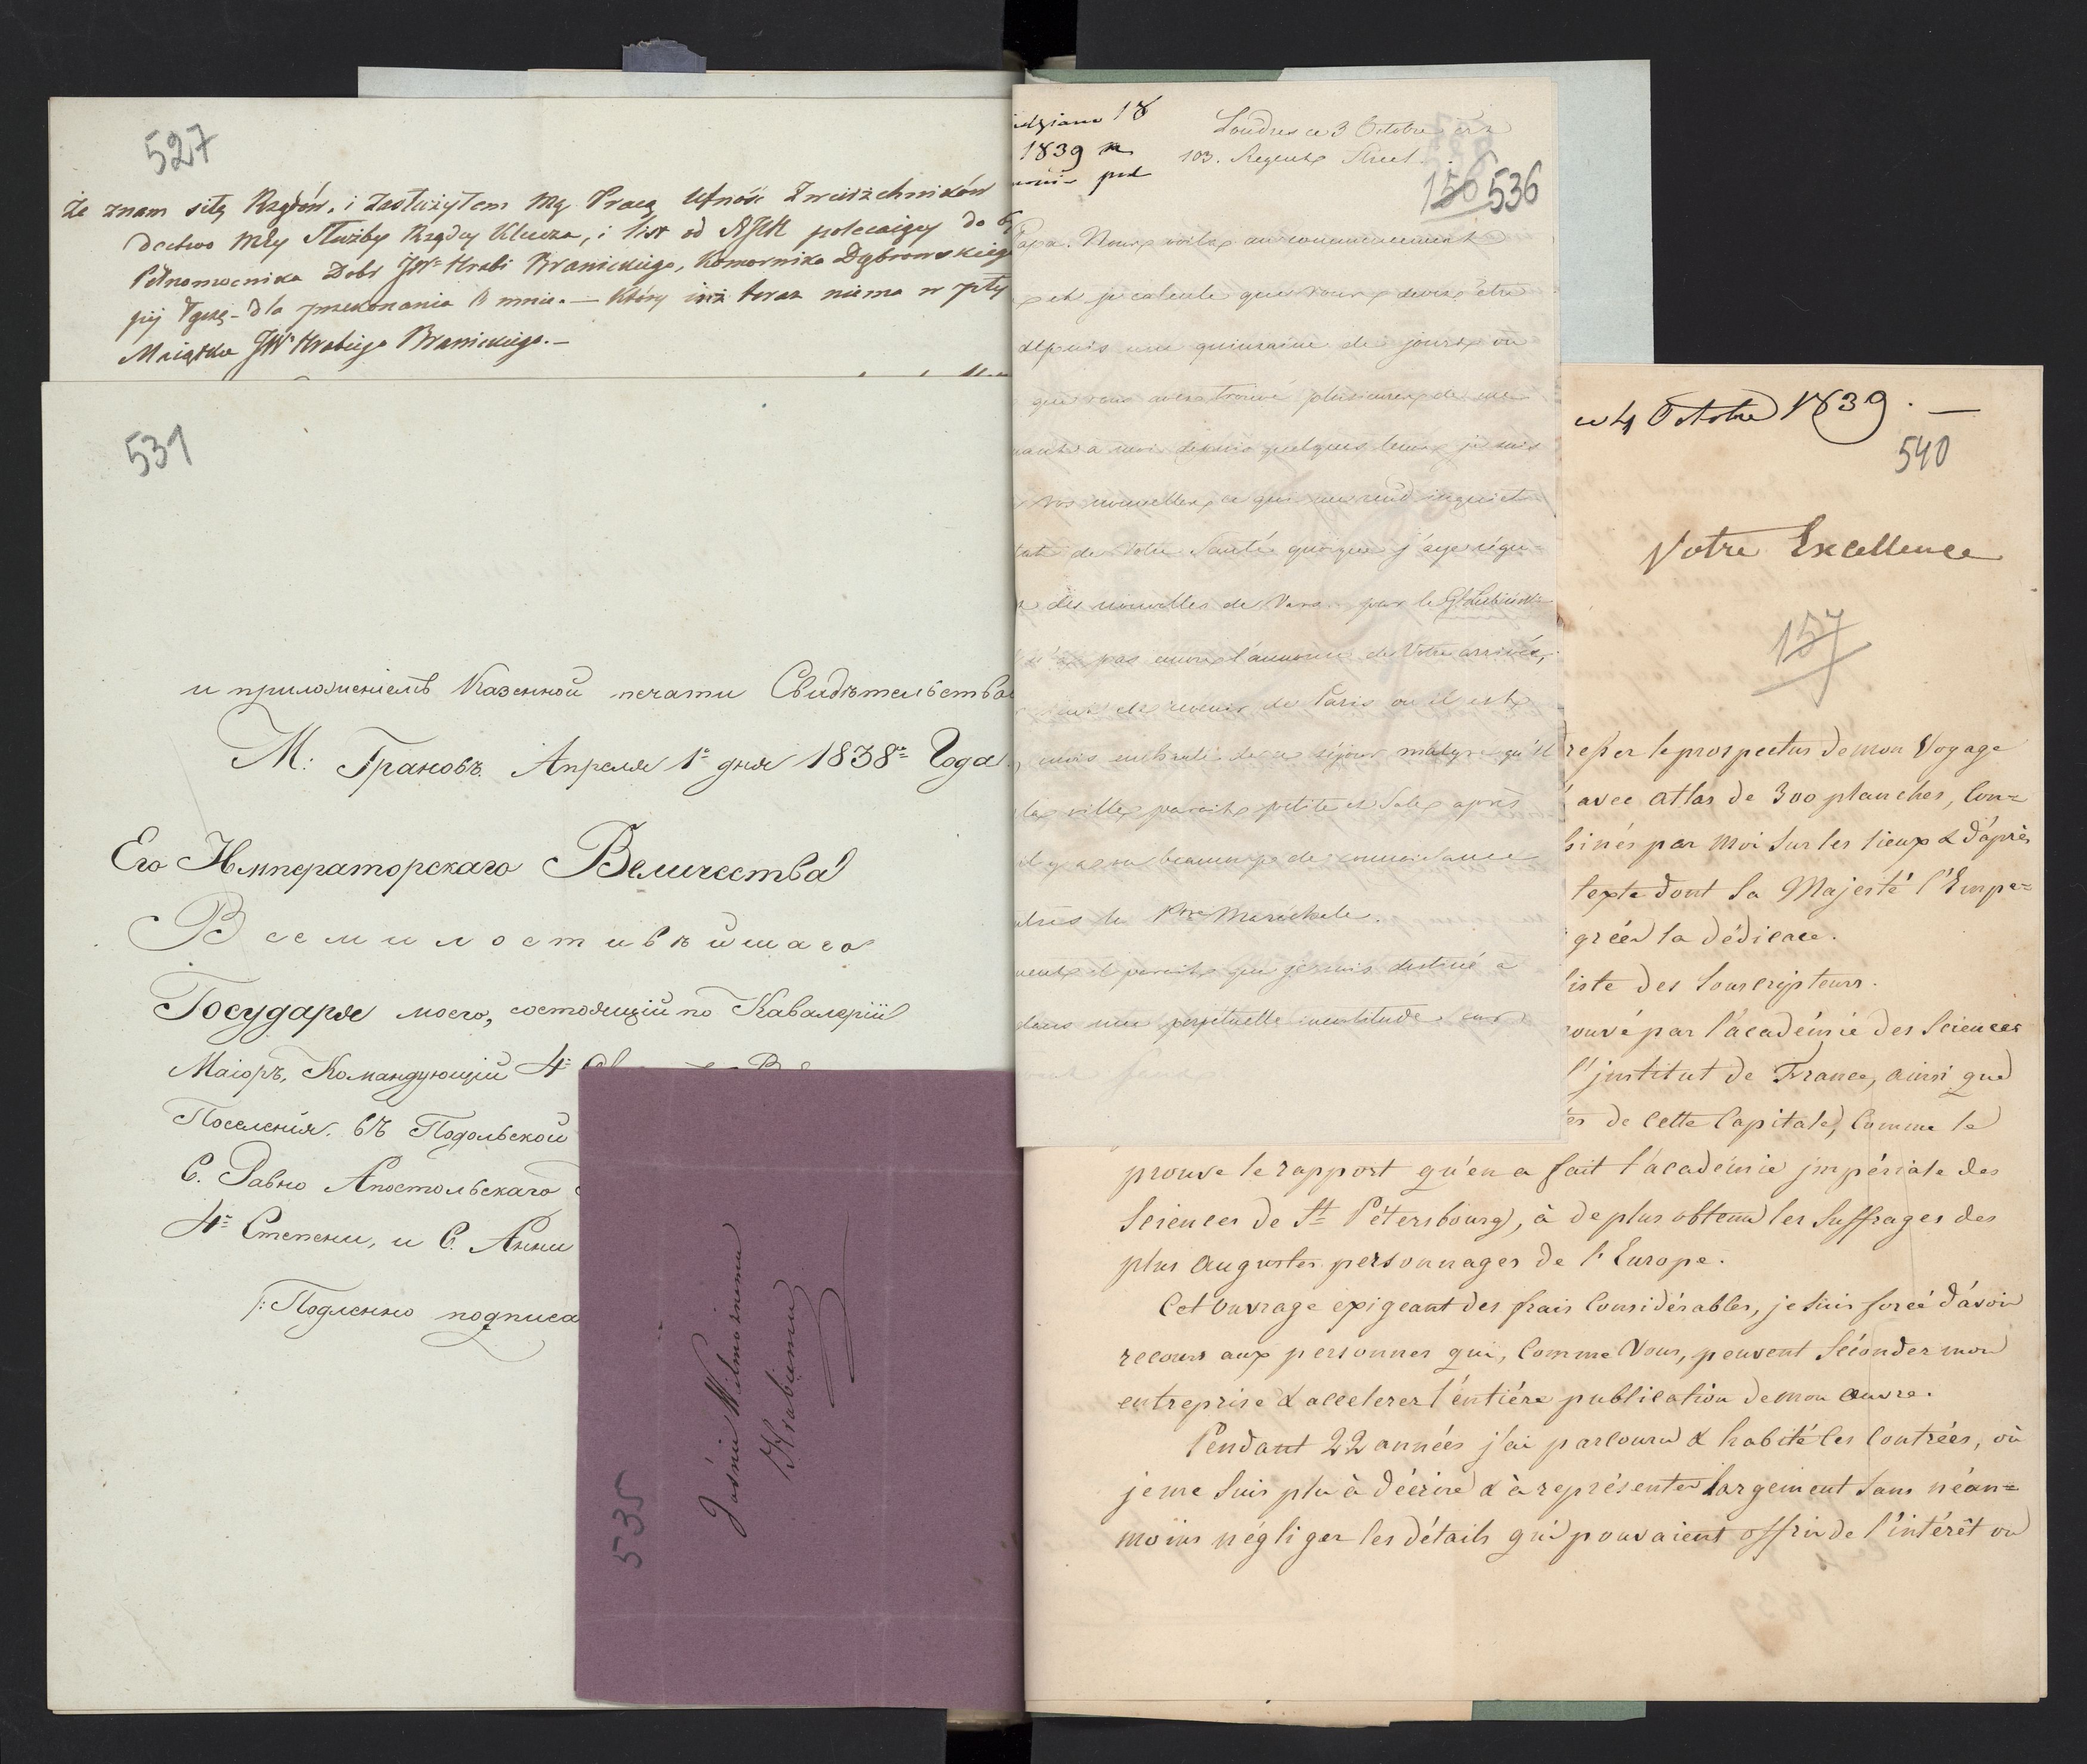 527
Że znam siłę Rządów, i zasłużyłem mą Pracą Ufność Zwierzchników
dectwo mey Służby Rządcy Klucza, i list od polecaiący do
Pełnomocnika Dobr JW Hrabi Branickiego, Komornika Dąbrowskiego
dla przekonania o mnie. — Który iuż teraz niema w
Maiątku JW Hrabiego Branickiego. —
531
и приложеніемъ Казенной печати Свидѣтельство
М: Грановъ. Апреля 1го дня 1838го Года
Его Императорскаго Величества
Всемилостивѣйшаго
Государя моего, состоящій по Кавалеріи
Маіоръ, Командующій 4
Поселенія. въ Подольской
С. Равно Апостольскаго
4й Степени, и С. Анны
/: Подленно подписа
535
Jaśnie Wilmożnemu
Hrabiemu
18
1839
Londres ce 3 Octobre
103. Regents Street.
150 536
Papa. Nous voila au commencement
et je calcule que vous devez être
depuis une quinzaine de jours ou
que vous avez trouvé plusieurs de me
a moi depuis quelques tems je suis
nouvelles, ce que me rend inquiet
de Votre Santé quoique j'aye régu-
des nouvelles de Vars. par le
pas encore l'annonce de Votre arrivée,
de revenir de Paris ou il est
mais enchanté de ce séjour malgré qu'il
la ville parait petite et Sale après
il y a eu beaucoup de connoissance
la Pсе Maréchale.
il parait que je suis destiné a
dans une perpetuelle incertitude sur
ce 4 Octobre 1839. —
540
Votre Excellence
157
resser le prospectus de mon Voyage
avec atlas de 300 planches, Con=
sinés par moi sur les lieux & d'après
texte dont Sa Majesté l'Empe=
gréer la dédicace.
liste des Souscripteurs.
rouvé par l'académie des Sciences
l'institut de France, ainsi que
es de cette Capitale, Comme le
prouve le rapport qu'en a fait l'académie impériale des
Sciences de St Pétersbourg, à de plus obtenu les Suffrages des
plus Augustes personnages de l'Europe.
Cet Ouvrage exigeant des frais Considérables, je suis forcé d'avoir
recours aux personnes qui, Comme Vous, peuvent Séconder mon
entreprise & accelerer l'entière publication de mon œuvre.
Pendant 22 années j'ai parcouru & habité les Contrées, où
je me suis plu à décrire & à représenter largement Sans néan=
moins négliger les détails qui pouvaient offrir de l'intérêt ou